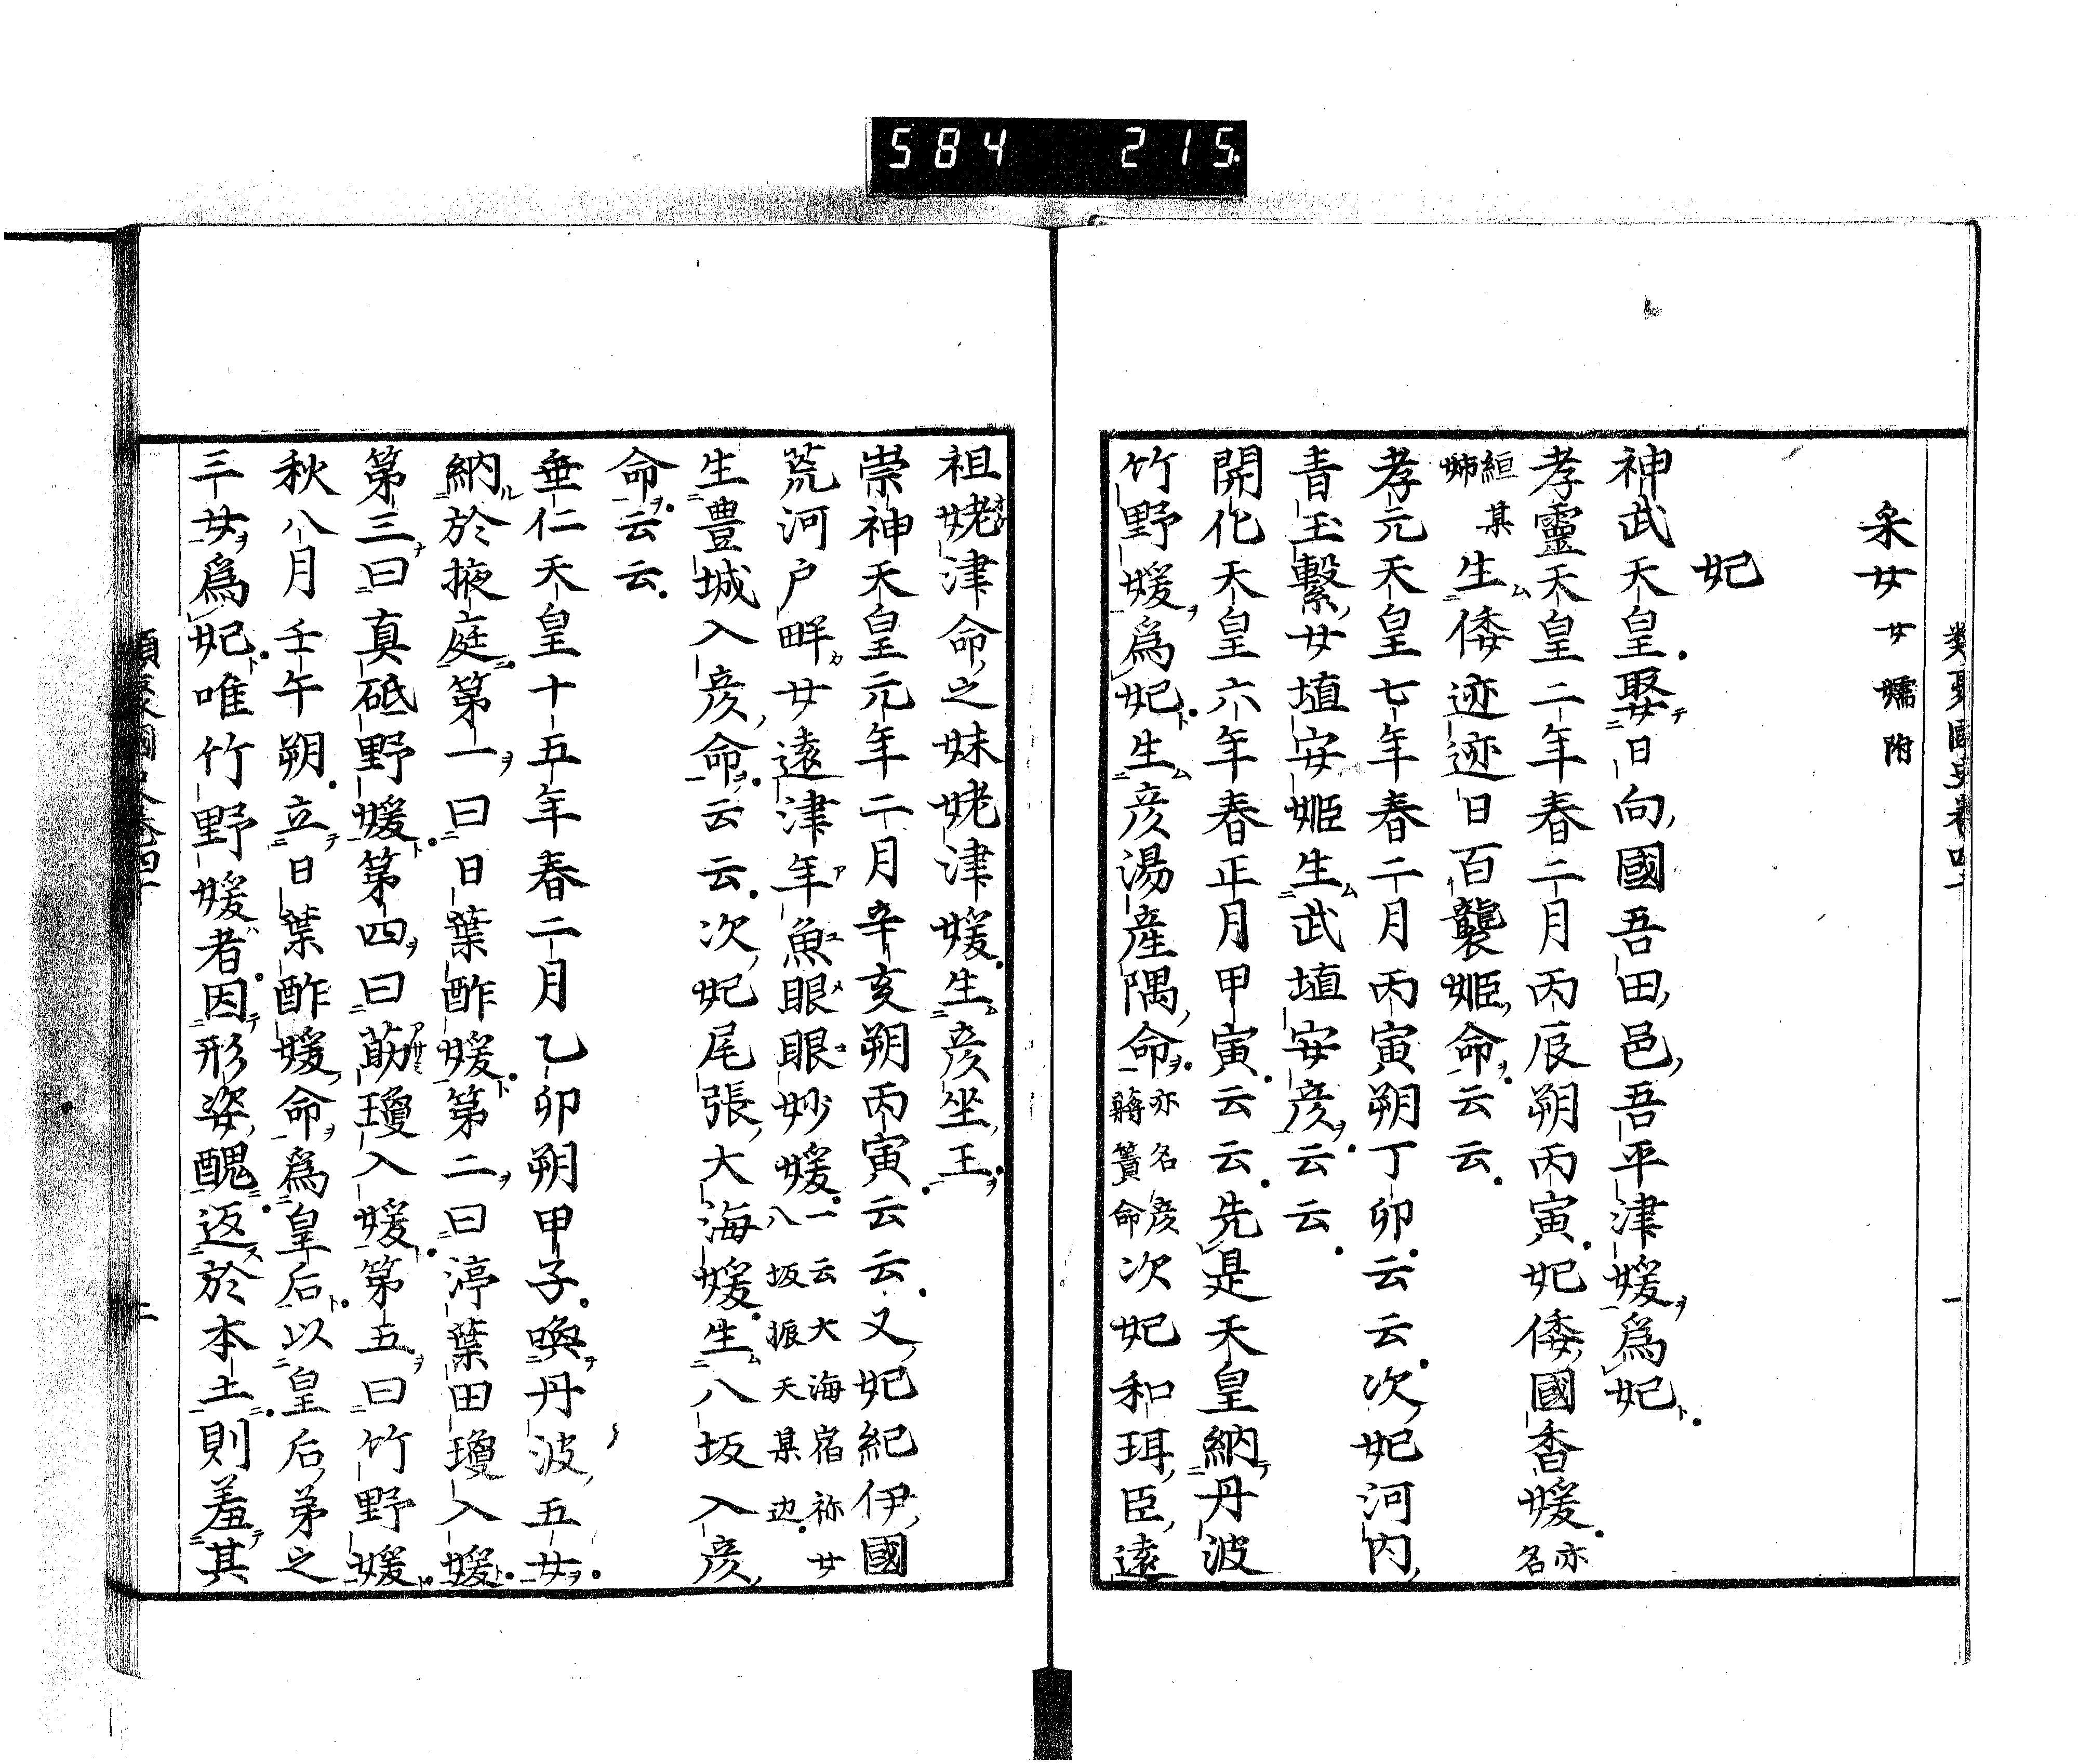 584 215
采女 女嬬附
妃
神武天皇娶日向國吾田邑吾平津媛爲妃
孝靈天皇二年春二月丙辰朔丙寅妃倭國香媛亦名
絙某姉生倭迹迹日百襲姫命云云
孝元天皇七年春二月丙寅朔丁卯云云次妃河内
青玉繫女埴安姫生武埴安彦云云
開化天皇六年春正月甲寅云云先是天皇納丹波
竹野媛爲妃生彦湯産隅命亦名彦蔣簀命次妃和珥臣遠
祖姥津命之妹姥津媛生彦坐王
崇神天皇元年二月辛亥朔丙寅云云又妃紀伊國
荒河戸畔女遠津年魚眼眼妙媛一云大海宿祢女八坂振天某辺
生豊城入彦命云云次妃尾張大海媛生八坂入彦
命云云
垂仁天皇十五年春二月乙卯朔甲子喚丹波五女
納於掖庭第一曰日葉酢媛第二曰渟葉田瓊入媛
第三曰真砥野媛第四曰莇瓊入媛第五曰竹野媛
秋八月壬午朔立日葉酢媛命爲皇后以皇后弟之
三女爲妃唯竹野媛者因形姿醜返於本土則羞其